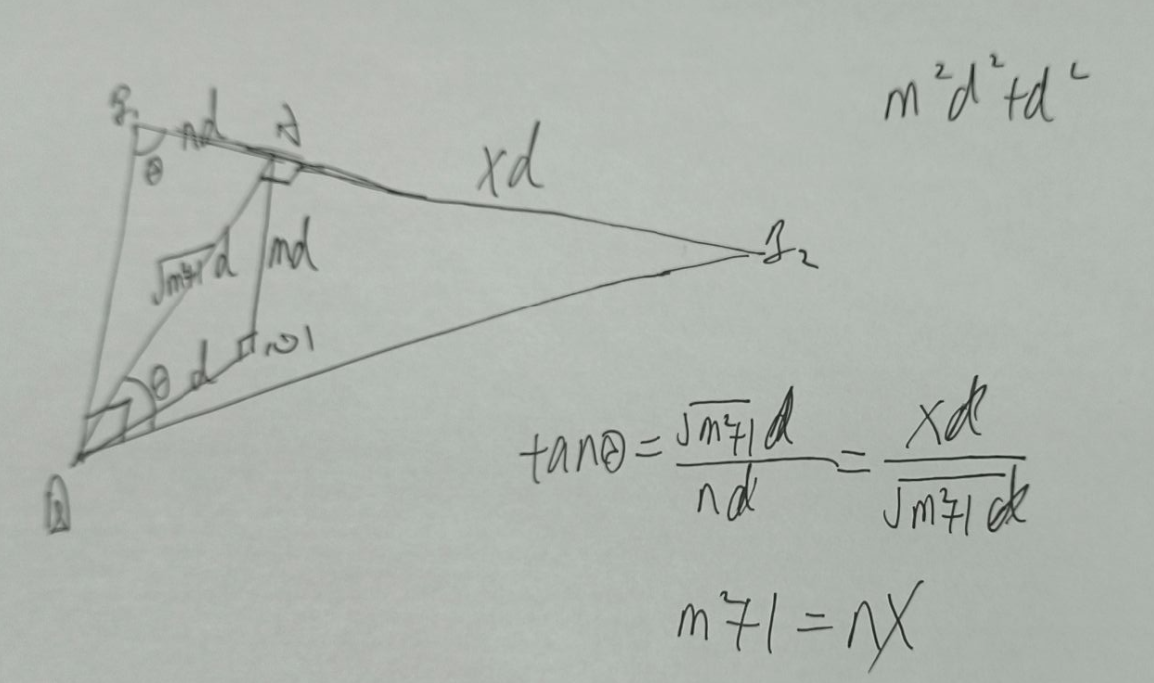 m²d²+d²
nd
A
xd
θ
√m²+1 d
md
θ
d
tanθ = √m²+1 d / nd = xd / √m²+1 d
m²+1 = nx